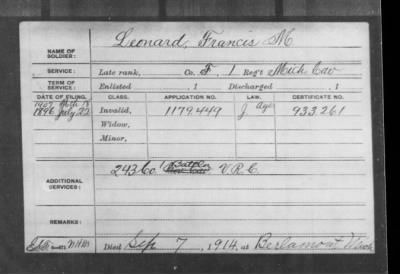 Leonard, Francis M
NAME OF SOLDIER:
SERVICE: Late rank, Co. F, 1 Reg't Mich Cav
TERM OF SERVICE: Enlisted , 1 Discharged , 1
DATE OF FILING. CLASS. APPLICATION NO. LAW. CERTIFICATE NO.
1907 Mch 18
1896 July 22 Invalid, 1179.449 Age 933.261
Widow,
Minor,
ADDITIONAL SERVICES: 243 Co 1 Batln V.R.C.
REMARKS:
Died Sep 7, 1914, at